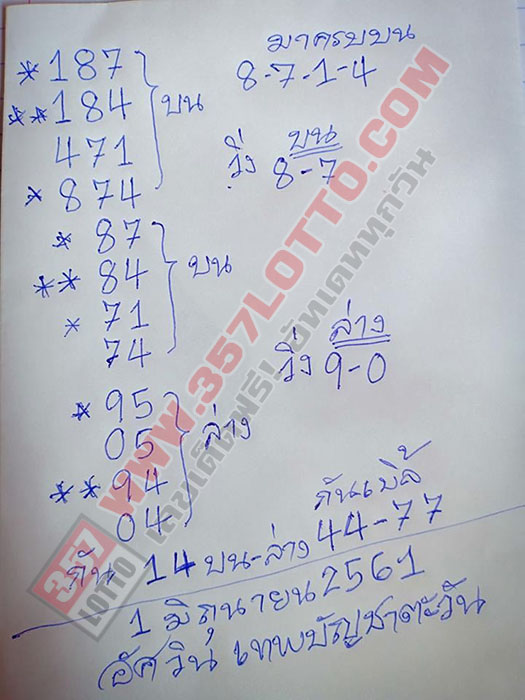 มาครบบน
8-7-1-4
*187
**184
471
*874
บน
วิ่ง บน
8-7
*87
**84
*71
74
บน
วิ่ง ล่าง
9-0
*95
05
**94
04
ล่าง
กันเบิ้ล
44-77
กัน 14 บน-ล่าง
1 มิถุนายน 2561
อัศวิน เทพบัญชาตะวัน
WWW.357LOTTO.COM
เลขเด็ดฟรี! อัทเดททุกวัน
357
LOTTO